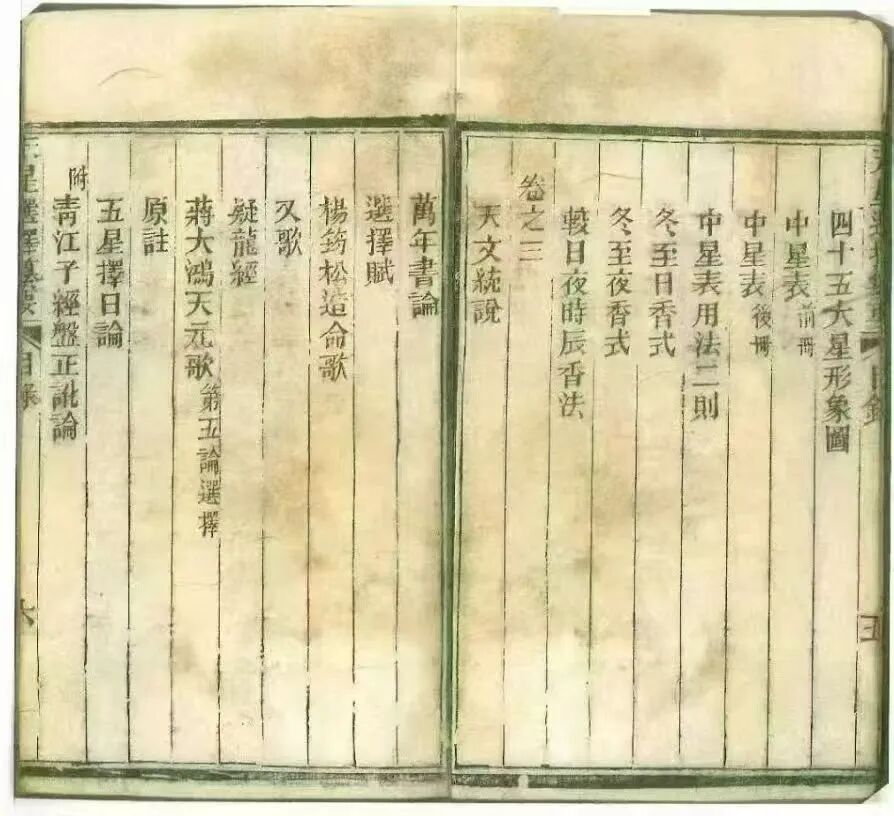 四十五大星形象圖
中星表 前冊
中星表 後冊
中星表用法二則
冬至日香式
冬至夜香式
較日夜時辰香法
卷之三
天文統說
萬年書論
選擇賦
楊筠松造命歌
又歌
疑龍經
蔣大鴻天元歌 第五論選擇
原註
五星擇日論
附 靑江子經盤正訛論
目錄
六